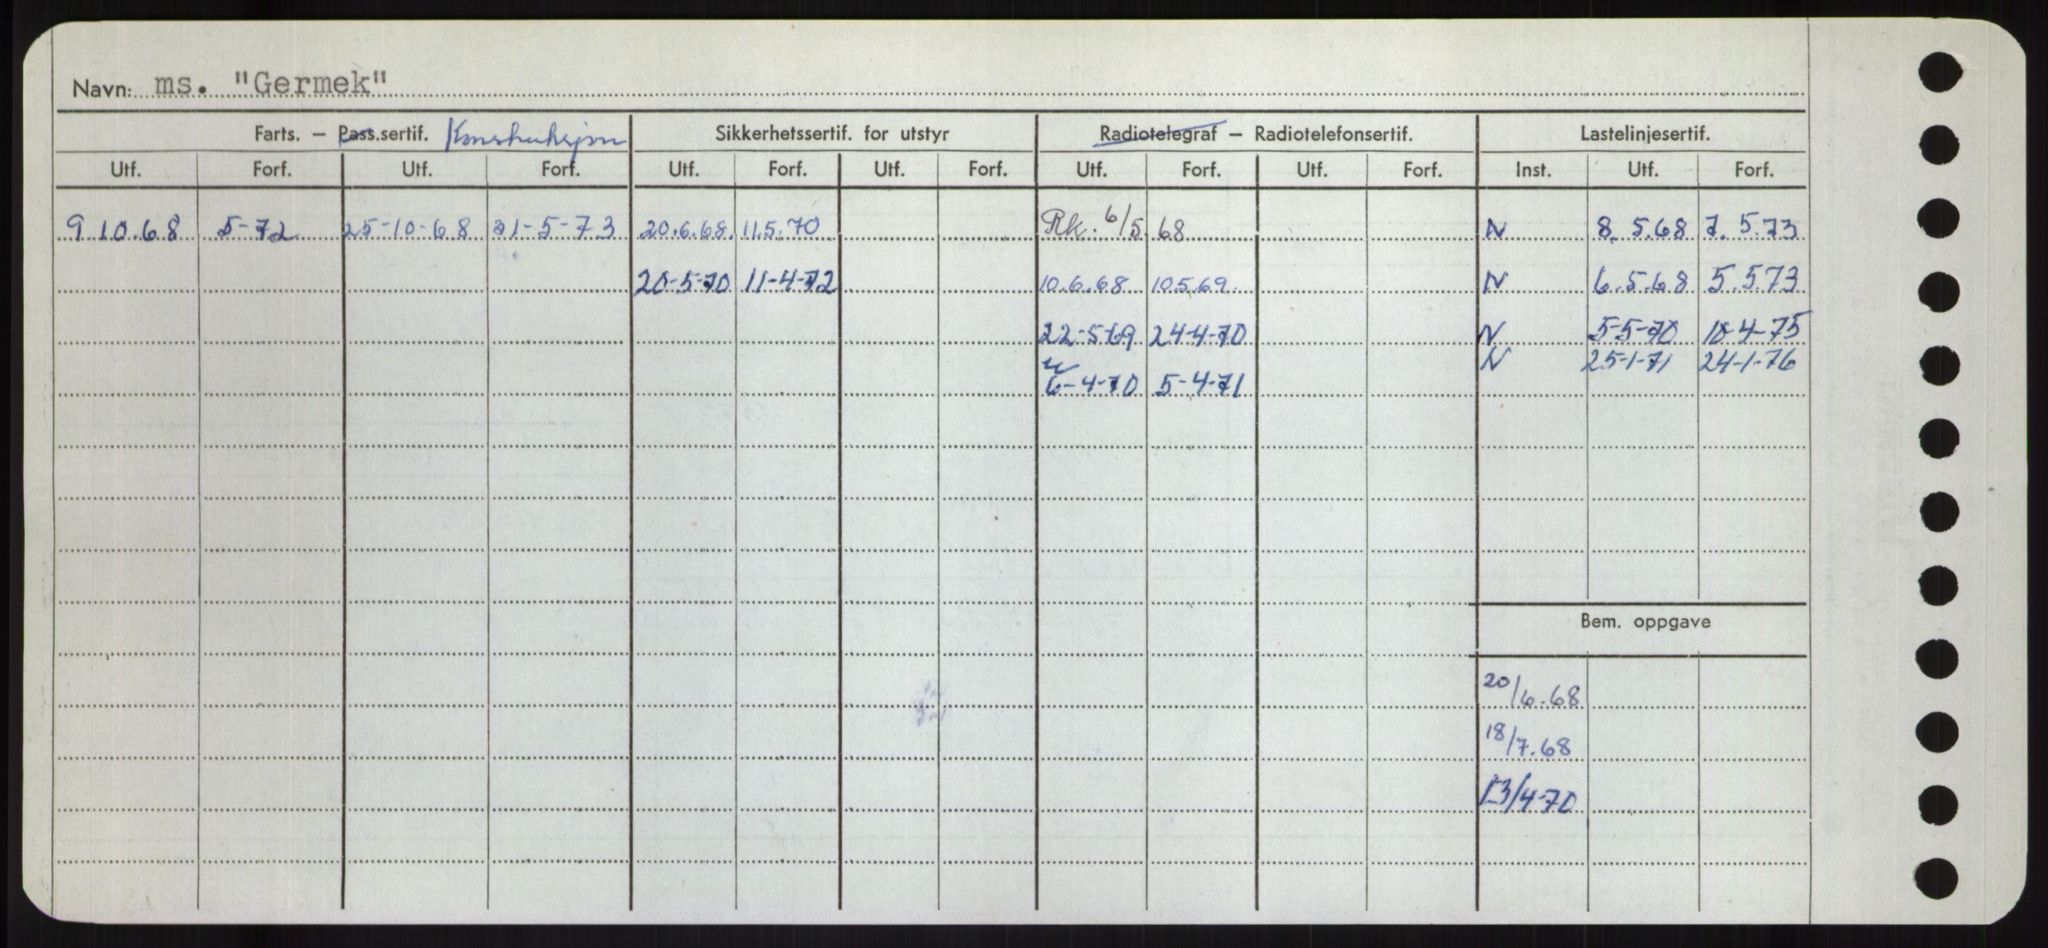 Navn: ms. "Germek"
Farts. – Pass.sertif. Konstruksjon Sikkerhetssertif. for utstyr Radiotelegraf – Radiotelefonsertif. Lastelinjesertif.
Utf. Forf. Utf. Forf. Utf. Forf. Utf. Forf. Utf. Forf. Utf. Forf. Inst. Utf. Forf.
9.10.68 5-72 25-10-68 31-5-73 20.6.68. 11.5.70 Rk. 6/5.68 N 8.5.68 7.5.73
20-5-70 11-4-72 10.6.68 10.5.69. N 6.5.68 5.5.73
22-5-69 24-4-70 N 5-5-70 10-4-75
N 25-1-71 24-1-76
6-4-70 5-4-71
Bem. oppgave
20/6.68
18/7.68
13/4-70